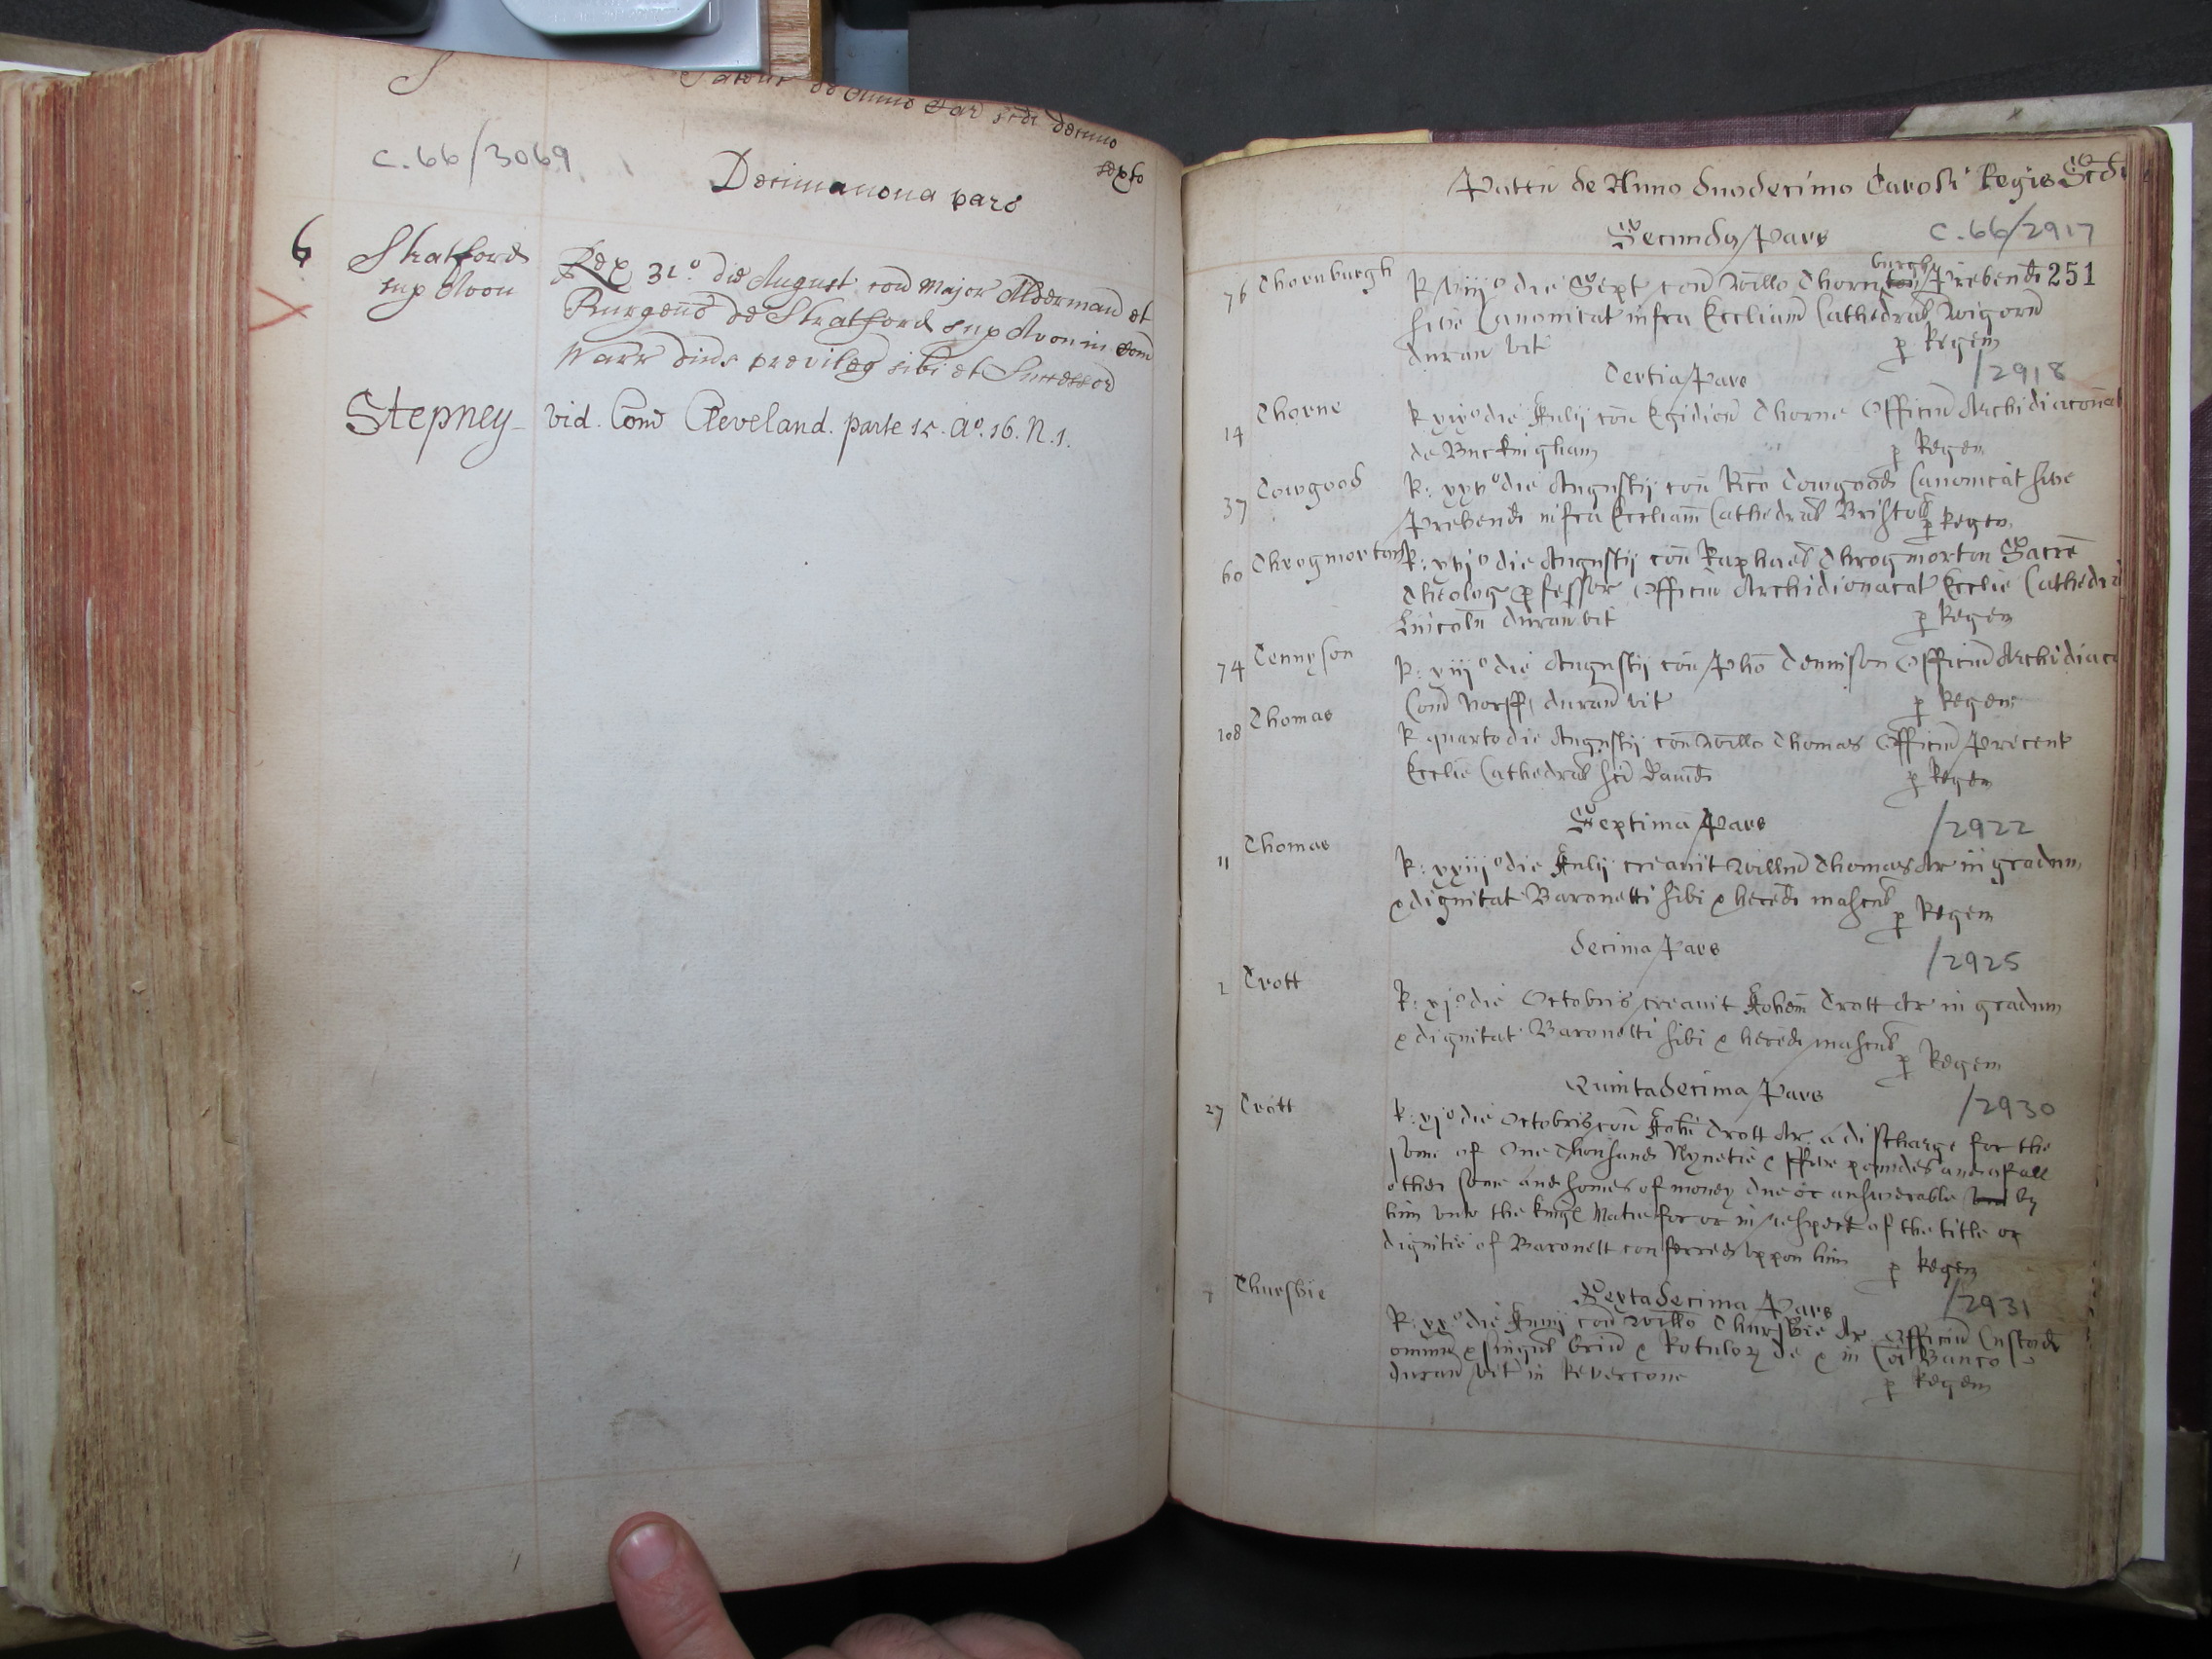 S Patent de Anno Car scdi decimo
sexto
C.66/3069
Decimanona pars
6 Stratford
sup Avon
Rex 31º die August con Major Alderman et
Burgens de Stratford sup Avon in Com
Warr divs privileg sibi et Successor
Stepney - vid. Com Cleveland. parte 15. Aº. 16. N. 1.
Patten de Anno duodecimo Caroli Regis Scdi
Secunda Pars C.66/2917
251
76 Thornburgh R viijº die Sept con Willo Thornburgh Prebend
sive Canonicat infra Eccliam Cathedral Wigorn
duran vit p Regem
Tertia Pars /2918
14 Thorne R xixº die Julij con Egidion Thorne Officiu Archidiaconat
de Buckingham p Regem
37 Towgood R: xxvº die Augustij con Rico Towgood Canonicat sive
Prebend infra Eccliam Cathedral Bristoll p Regem
60 Throgmorton R: xvjº die Augustij con Raphael Throgmorton Sacre
Theolog Pfessor Officiu Archidionacat Ecclie Cathedral
Lincoln duran vit p Regem
74 Tennyson R: xiijº die Augustij con Pho Tennison Officiu Archidiaco
Com Norff duran vit p Regem
108 Thomas R quarto die Augustij con Willo Thomas Officiu Precent
Ecclie Cathedral sci David p Regem
Septima Pars /2922
11 Thomas R: xxiijº die Julij creavit Willm Thomas Ar in gradum
& dignitat Baronetti sibi & hered mascul p Regem
Decima Pars /2925
2 Trott R: xjº die Octobris creavit Johem Trott Ar in gradum
& dignitat Baronetti sibi & hered mascul p Regem
Quintadecima Pars /2930
27 Trott R: xjº die Octobris con Johi Trott Ar. a discharge for the
some of One Thousand Nynetie & ffive poundes and of all
other some and somes of money due or answerable by
him unto the kings Matie for or in respect of the title or
dignitie of Baronett conferred uppon him p Regem
Sextadecima Pars /2931
Thursbie R: xxº die Junij con Willo Thursbie Ar. Officiu Custod
omniu & singul Briu & Rotulor de & in Coi Banco
duran vit in Revercone p Regem